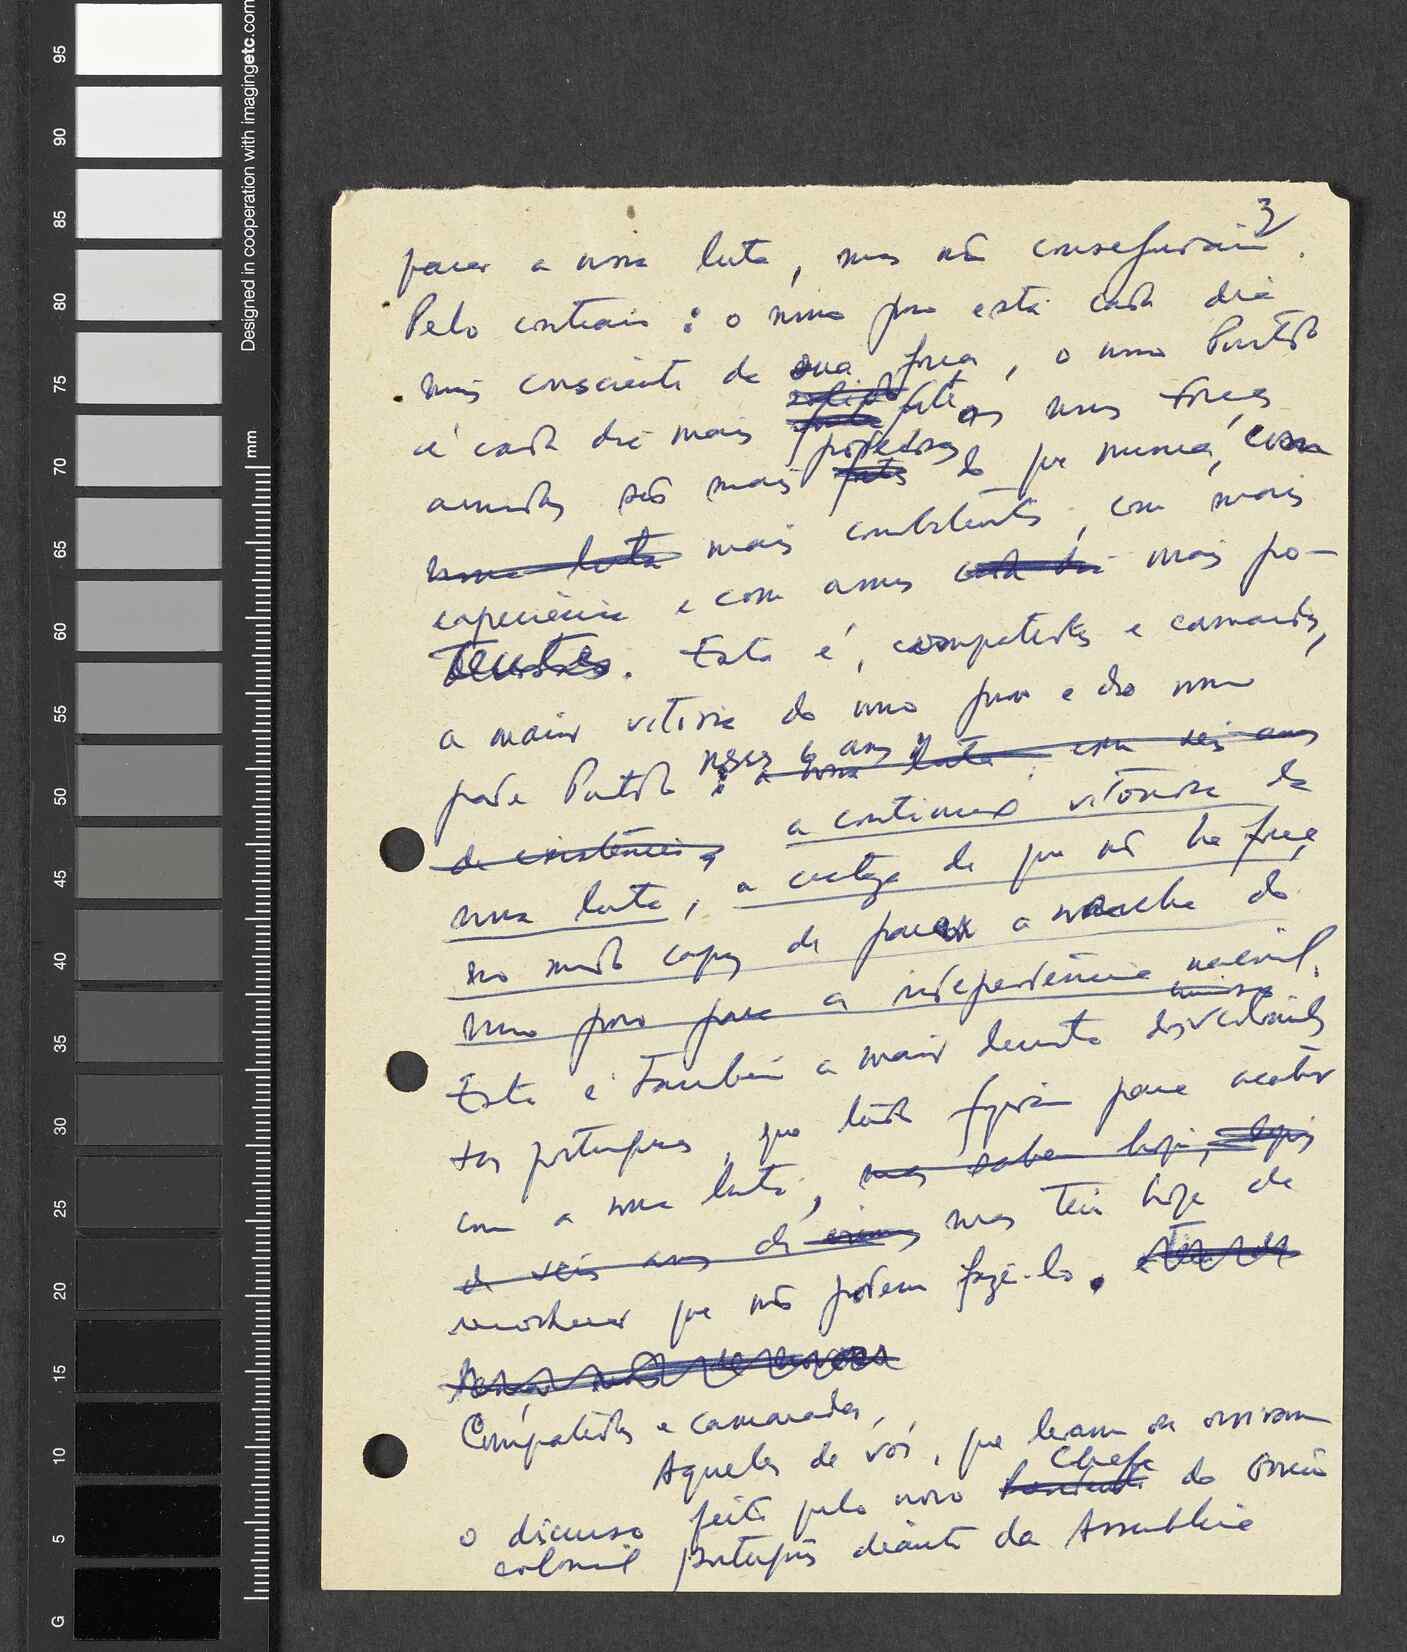 3
parar a nossa luta, mas não conseguiram.
Pelo contrário: o nosso povo está cada dia
mais consciente da sua força, o nosso Partido
é cada dia mais forte, as nossas forças
armadas são mais poderosas do que nunca, com
nossa luta mais combatentes, com mais
experiência e com armas cada dia mais po-
tentes. Esta é, compatriotas e camaradas,
a maior vitória do nosso povo e do nosso
grande Partido nesses 6 anos: a nossa luta com seis anos
de existência, a contínua vitoriosa da
nossa luta, a certeza de que não há força
no mundo capaz de parar a marcha do
nosso povo para a independência nacional.
Esta é também a maior derrota dos colonialis-
tas portugueses, que tudo fizeram para acabar
com a nossa luta, mas sabem hoje, depois
de seis anos de crimes mas têm hoje de
reconhecer que não podem fazê-lo.
Compatriotas e camaradas,
Aqueles de vós, que leram ou ouviram
o discurso feito pelo novo Chefe do Governo
colonial português diante da Assembleia
Designed in cooperation with imagingetc.com
mm
95
90
85
80
75
70
65
60
55
50
45
40
35
30
25
20
15
10
5
G